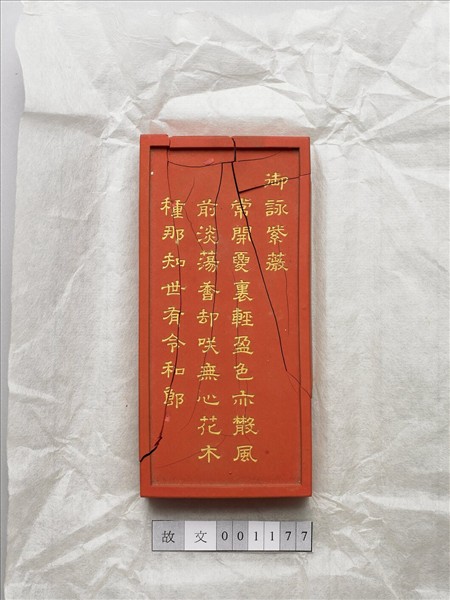 御詠紫薇
常開夏裏輕盈色亦散風
前淡蕩香却咲無心花木
種那知世有令和郎
故文001177